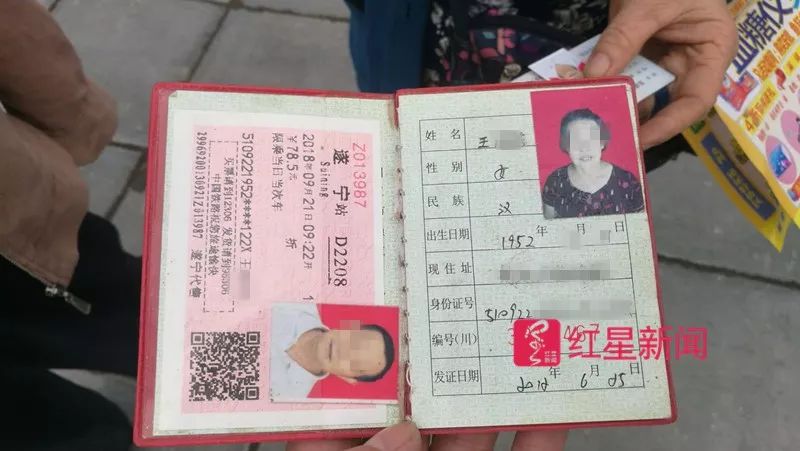 Z013987
遂宁站 D2208
Suining
2018年09月21日09:22开
￥78.5元 折
限乘当日当次车
5109221952****122X 王
买票请到12306 发货请到95306
中国铁路祝您旅途愉快
29969200130921Z013987 遂宁代售
姓名 王
性别 女
民族 汉
出生日期 1952年 月
现住址
身份证号 510922
编号(川)
发证日期 2012年6月25日
红星新闻
血糖仪